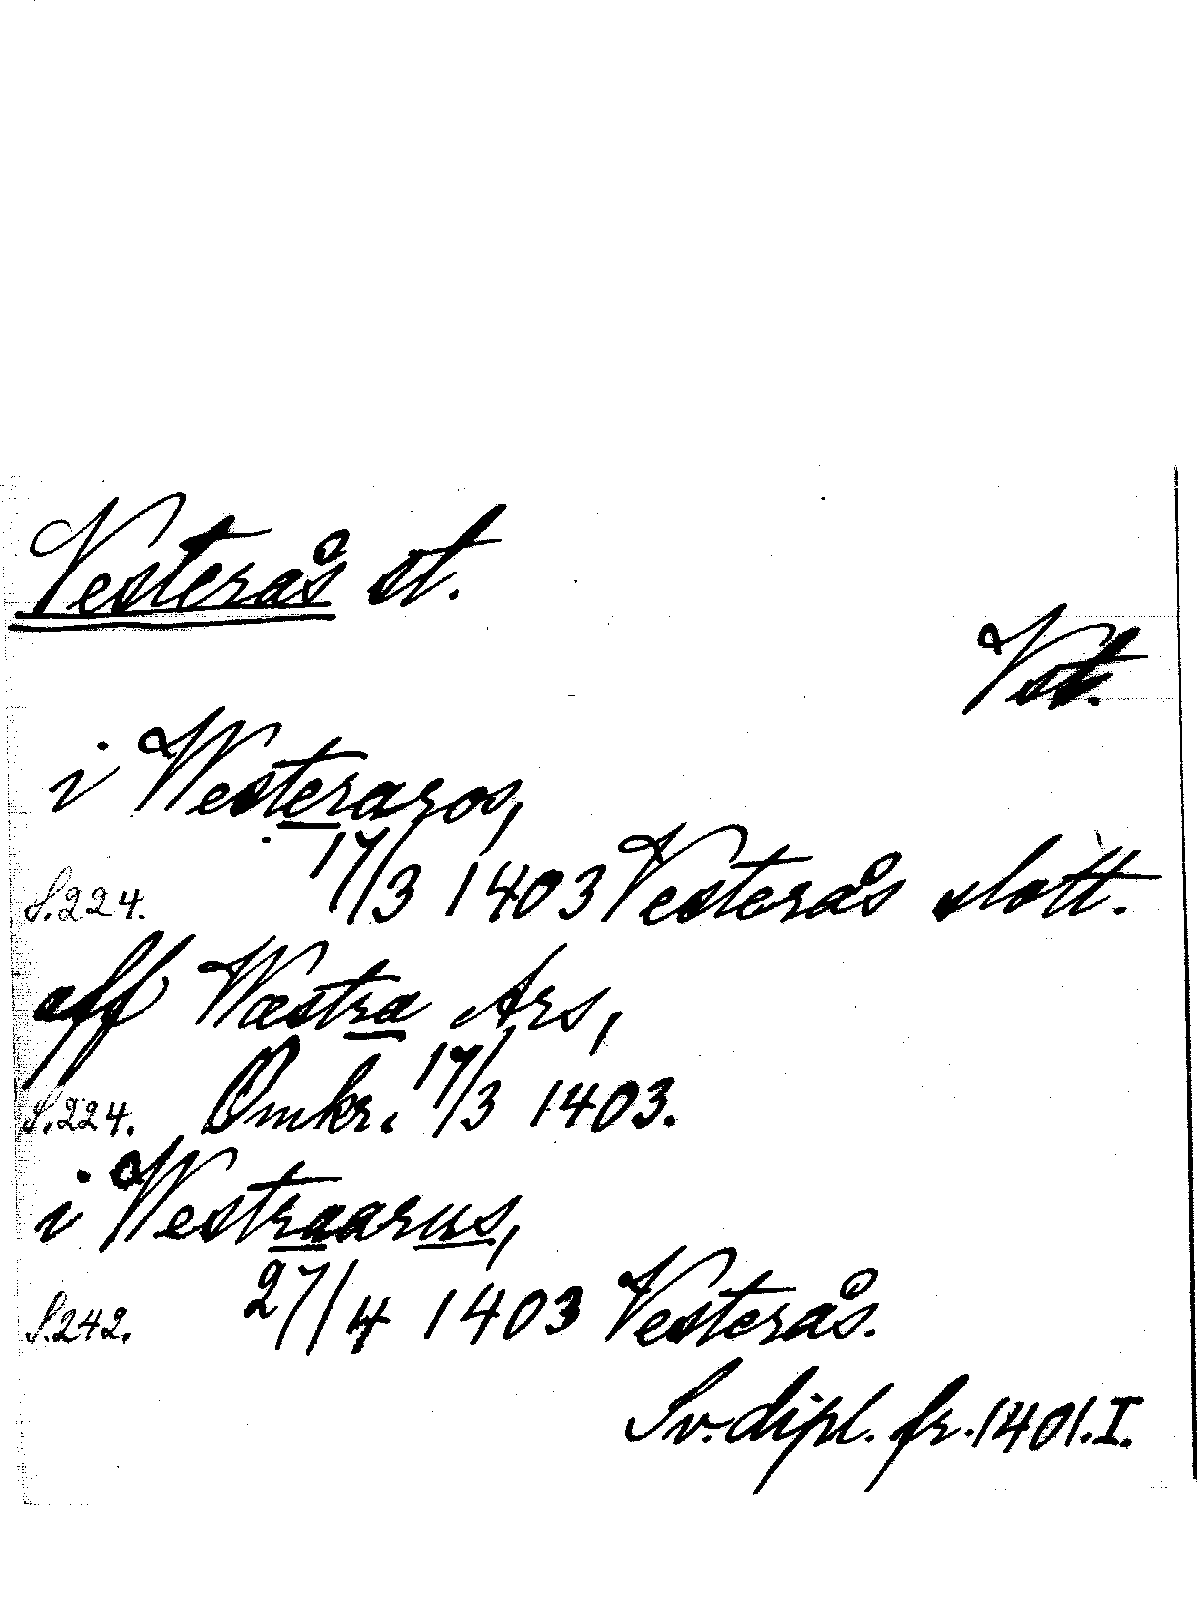 Vesterås st.
Vst.
i Westeraros,
S.224. 17/3 1403 Vesterås slott.
aff Wæstra Ars,
S.224. Omkr. 17/3 1403.
i Westraarus,
S.242. 27/4 1403 Vesterås.
Sv. dipl. fr. 1401. I.